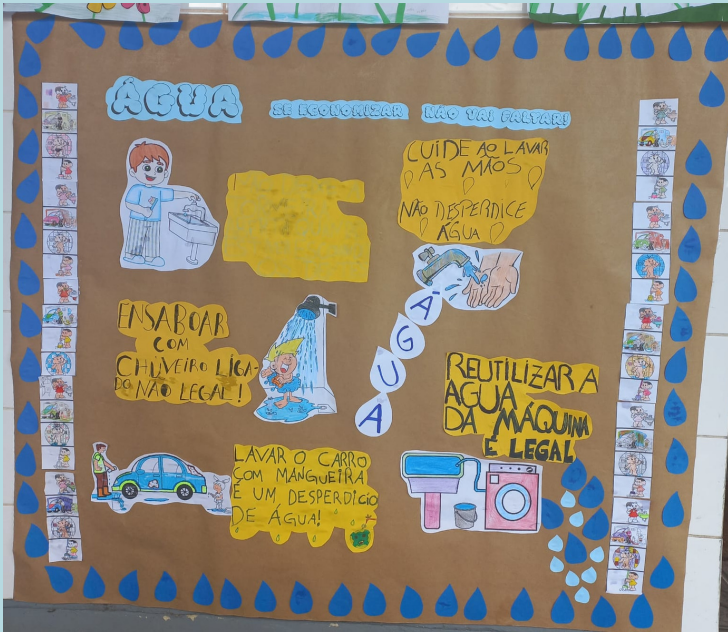 ÁGUA
SE ECONOMIZAR NÃO VAI FALTAR!
CUIDE AO LAVAR
AS MÃOS
NÃO DESPERDICE
ÁGUA
ENSABOAR
COM
CHUVEIRO LIGA-
DO NÃO LEGAL!
ÁGUA
REUTILIZAR A
AGUA
DA MÁQUINA
É LEGAL
LAVAR O CARRO
COM MANGUEIRA
E UM DESPERDICIO
DE ÁGUA!